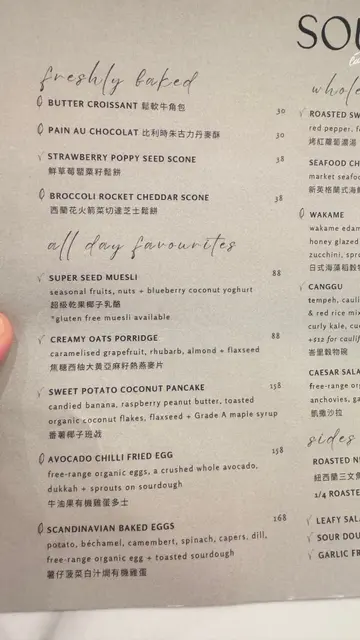 SOU
freshly baked
BUTTER CROISSANT 鬆軟牛角包 30
PAIN AU CHOCOLAT 比利時朱古力丹麥酥 30
STRAWBERRY POPPY SEED SCONE 38
鮮草莓罌粟籽鬆餅
BROCCOLI ROCKET CHEDDAR SCONE 38
西蘭花火箭菜切達芝士鬆餅
all day favourites
SUPER SEED MUESLI 88
seasonal fruits, nuts + blueberry coconut yoghurt
超級乾果椰子乳酪
*gluten free muesli available
CREAMY OATS PORRIDGE 88
caramelised grapefruit, rhubarb, almond + flaxseed
焦糖西柚大黄亞麻籽熱燕麥片
SWEET POTATO COCONUT PANCAKE 158
candied banana, raspberry peanut butter, toasted
organic coconut flakes, flaxseed + Grade A maple syrup
番薯椰子班戟
AVOCADO CHILLI FRIED EGG 158
free-range organic eggs, a crushed whole avocado,
dukkah + sprouts on sourdough
牛油果有機雞蛋多士
SCANDINAVIAN BAKED EGGS 168
potato, béchamel, camembert, spinach, capers, dill,
free-range organic egg + toasted sourdough
薯仔菠菜白汁焗有機雞蛋
whole
ROASTED SW
red pepper, f
烤紅蘿蔔濃湯
SEAFOOD CH
market seafoo
新英格蘭式海鮮
WAKAME
wakame edam
honey glazed
zucchini, spro
日式海藻稻穀物
CANGGU
tempeh, cauli
& red rice mix
curly kale, cuc
+$12 for caulif
峇里穀物碗
CAESAR SALA
free-range org
anchovies, ga
凱撒沙拉
sides
ROASTED N
紐西蘭三文魚
1/4 ROASTE
LEAFY SALA
SOUR DOU
GARLIC FR